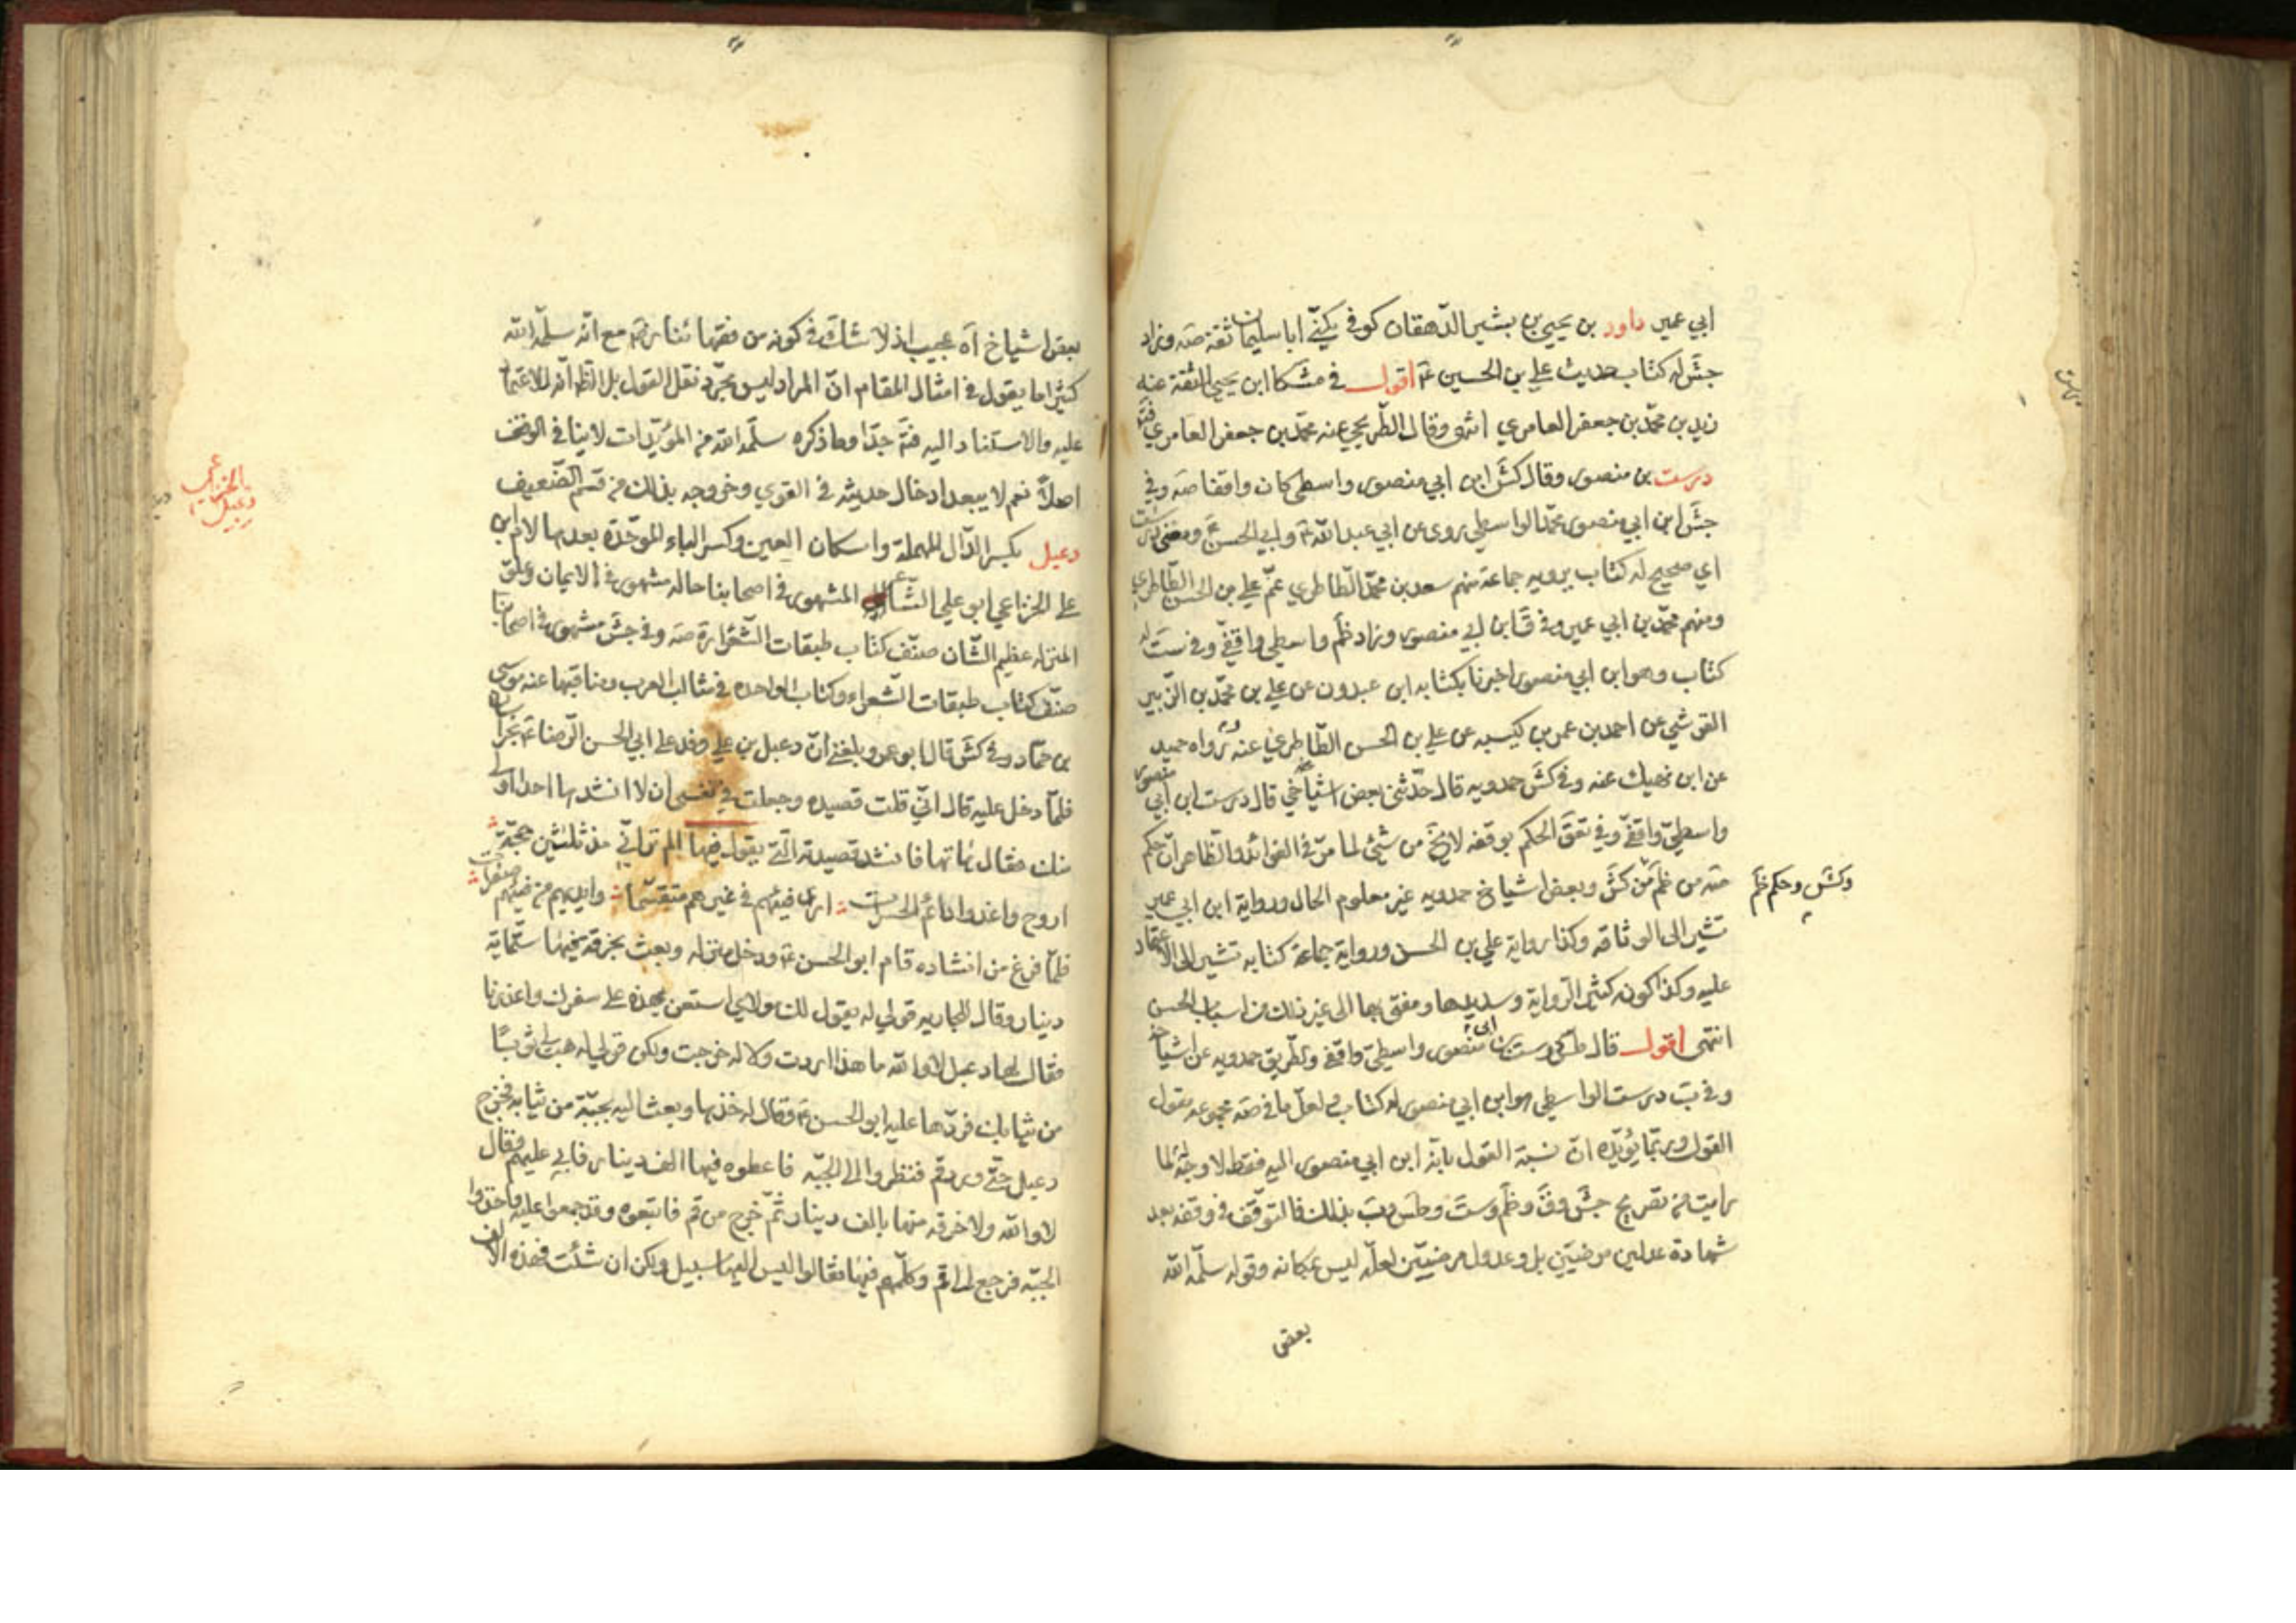 ابي عمير داود بن يحيى بن بشير الدهقان كوفي يكنى ابا سليمان ثقة صه وزاد
جش له كتاب حديث علي بن الحسين ع اقول في مشكا ابن يحيى الثقة عنه
زيد بن محمد بن جعفر العامري انتهى وقال الطريحي عنه محمد بن جعفر العامري
درست بن منصور وقال كش ابن ابي منصور واسطي كان واقفا صه وفي
جش ابن ابي منصور محمد الواسطي روى عن ابي عبد الله ع وابي الحسن ع ومعنى درست
اي صحيح له كتاب يرويه جماعة منهم سعد بن محمد الطاطري عم علي بن الحسن الطاطري
ومنهم محمد بن ابي عمير وفي ق ابن ابي منصور وزاد ظم واسطي واقفي وفي ست له
كتاب وهو ابن ابي منصور اخبرنا بكتابه ابن عبدون عن علي بن محمد بن الزبير
القرشي عن احمد بن عمر بن كيسبه عن علي بن الحسن الطاطري عنه ورواه حميد
عن ابن نهيك عنه وفي كش حمدويه قال حدثني بعض اشياخي قال درست ابن ابي منصور
واسطي واقفي وفي تعق الحكم بوقفه لا يخ من شئ لما مر في الفوائد والظاهر ان حكم
صه من ظم من كش وبعض اشياخ حمدويه غير معلوم الحال ورواية ابن ابي عمير
وكش وحكم ظم
تشير الى الوثاقه وكذا رواية علي بن الحسن ورواية جماعة كتابه تشير الى الاعتماد
عليه وكذا كونه كثير الرواية وسديدها ومفتى بها الى غير ذلك من اسباب الحسن
انتهى اقول قال طس درست بن ابي منصور واسطي واقفي والطريق حمدويه عن اشياخه
وفي ب درست الواسطي هو ابن ابي منصور له كتاب ولعل ما في صه مجموعه مقول
القول وربما يؤيده ان نسبة القول بانه ابن ابي منصور اليه فقط لا وجه له لما
رايت من تصريح جش وق وظم وست وطس وب بذلك فالتوقف في وقفه بعد
شهادة عدلين مرضيين بل وعدول مرضيين لعله ليس بمكانه وقوله سلمه الله
بعض
بعض اشياخ آه عجيب اذ لا شك في كونه من فقهائنا رض مع انه سلمه الله
كثيرا ما يقول في امثال المقام ان المراد ليس مجرد نقل القول بل الظاهر انه للاعتماد
عليه والاستناد اليه فتم جدا وما ذكره سلمه الله من المؤيدات لا ينافي الوقف
اصلا نعم لا يبعد ادخال حديثه في القوي وخروجه بذلك من قسم الضعيف
دعبل بكسر الدال المهملة واسكان العين وكسر الباء الموحدة بعدها لام ابن
دعبل الخزاعي
علي الخزاعي ابو علي الشاعر المشهور في اصحابنا حاله مشهور في الايمان وعلو
المنزله عظيم الشان صنف كتاب طبقات الشعراء ره صه وفي جش مشهور في اصحابنا
صنف كتاب طبقات الشعراء وكتاب الواحده في مثالب العرب ومناقبها عنه موسى
بن حماد وفي كش قال ابو عمرو بلغني ان دعبل بن علي وفد على ابي الحسن الرضا ع بخراسان
فلما دخل عليه قال اني قلت قصيده وجعلت في نفسي ان لا انشدها احدا اولى
منك فقال هاتها فانشد قصيدته التي يقول فيها الم تر اني مذ ثلثين حجة
اروح واغدوا دائم الحسرات ارى فيئهم في غيرهم متقسما وايديهم من فيئهم صفرات
فلما فرغ من انشاده قام ابو الحسن ع ودخل منزله وبعث بخرقة فيها ستمائة
دينار وقال للجاريه قولي له يقول لك مولاي استعن بهذه على سفرك واعذرنا
فقال لها دعبل لا والله ما هذا اردت ولا له خرجت ولكن قولي له هب لي ثوبا
من ثيابك فردها عليه ابو الحسن ع وقال له خذها وبعث اليه بجبة من ثيابه فخرج
دعبل حتى ورد قم فنظروا الى الجبه فاعطوه فيها الف دينار فابى عليهم وقال
لا والله ولا خرقه منها بالف دينار ثم خرج من قم فاتبعوه وقد جمعوا عليه واخذوا
الجبه فرجع الى قم وكلمهم فيها فقالوا ليس اليها سبيل ولكن ان شئت فهذه الالف